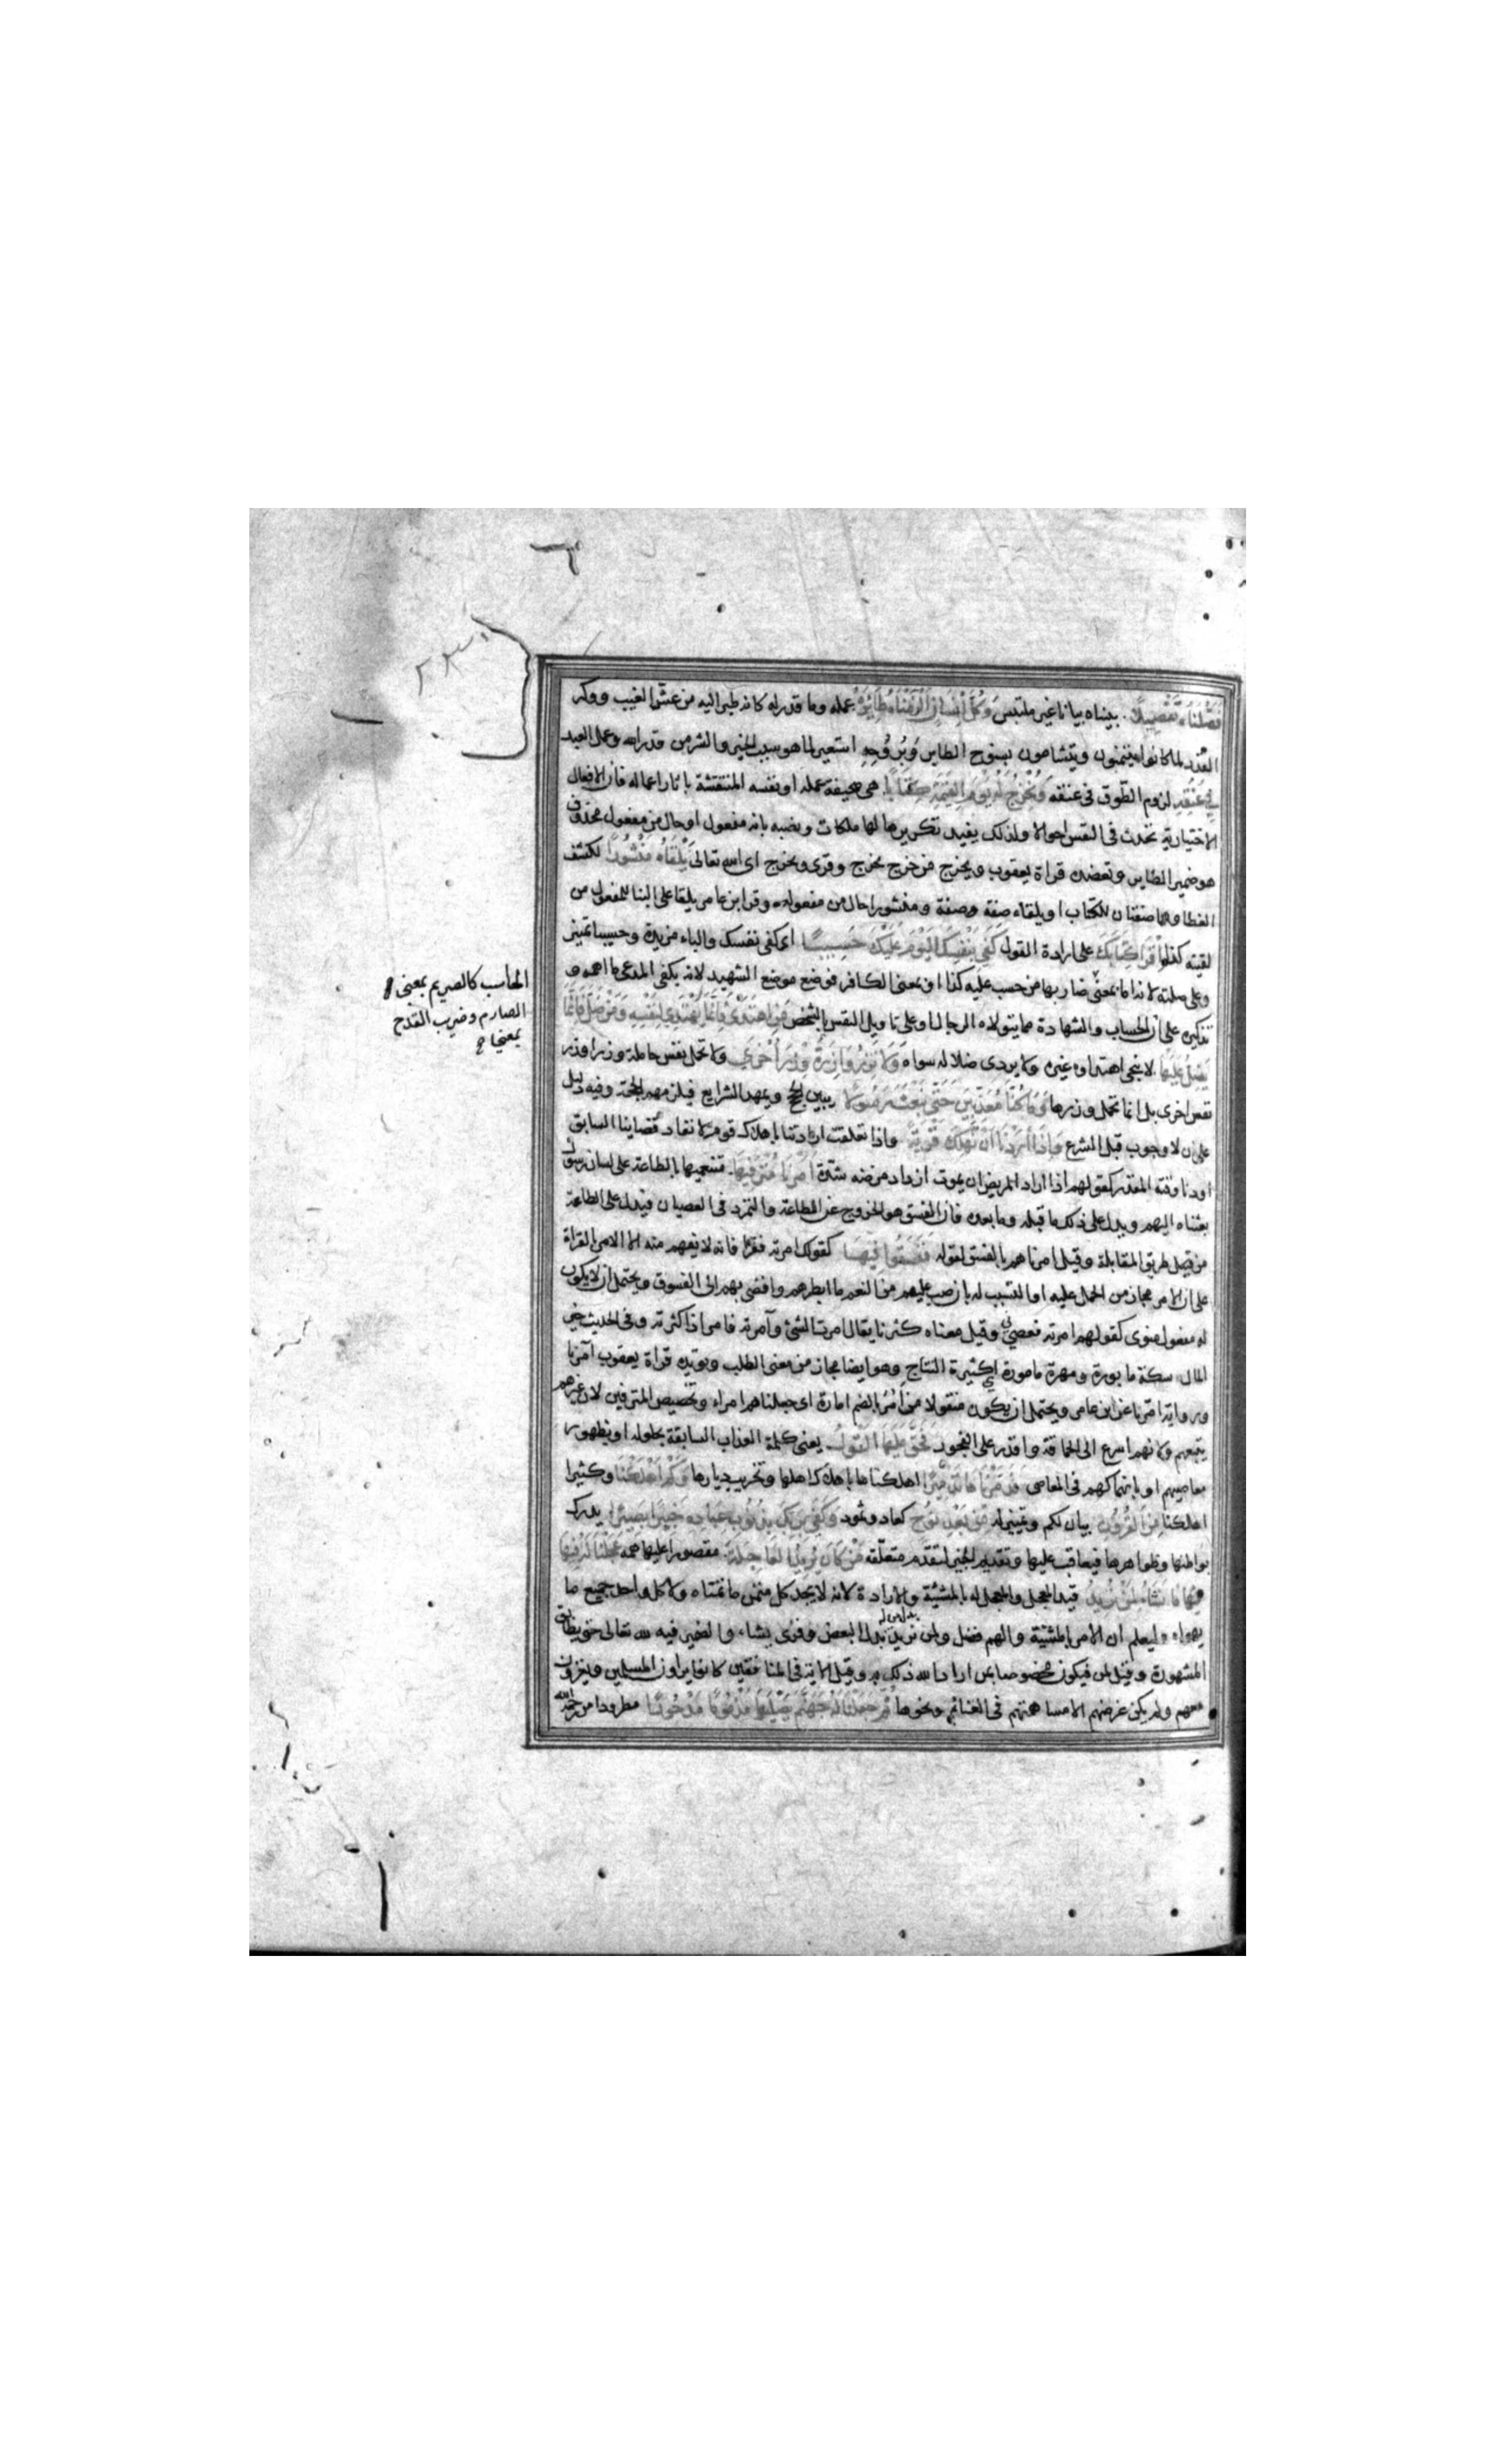 فَصَّلْنَاهُ تَفْصِيلًا بيناه بيانا غير ملتبس وَكُلَّ إِنسَانٍ أَلْزَمْنَاهُ طَائِرَهُ عمله وما قدر له كانه طير اليه من عش الغيب ووكر
القدر لما كانوا يتيمنون ويتشامون بسنوح الطاير وبروحه استعير لما هو سبب الخير والشر من قدر الله وعمل العبد
فِي عُنُقِهِ لزوم الطوق في عنقه وَنُخْرِجُ لَهُ يَوْمَ الْقِيٰمَةِ كِتَابًا هي صحيفة عمله او نفسه المنتقشة باثار اعماله فان الافعال
الاختيارية تحدث في النفس احوالا ولذلك يفيد تكريرها لها ملكات ونصبه بانه مفعول او حال من مفعول محذوف
هو ضمير الطاير وتعضده قراة يعقوب ويخرج من خرج يخرج وقرى ويخرج اى الله تعالى يَلْقَاهُ مَنْشُورًا لكشف
الغطا وهما صفتان للكتاب او يلقاه صفة ومنشورا حال من مفعوله وقرا ابن عامر يلقاه على البنا للمفعول من
لقيته كذا اقْرَأْ كِتَابَكَ على ارادة القول كَفَىٰ بِنَفْسِكَ الْيَوْمَ عَلَيْكَ حَسِيبًا اى كفى نفسك والباء مزيدة وحسيبا تميز
وعلى صلته لانه اما بمعنى ضاربها من حسب عليه كذا او بمعنى الكافي فوضع موضع الشهيد لانه يكفى المدعى ما اهمه و
تذكيره على ان الحساب والشهادة مما يتولاه الرجال او على تاويل النفس بالشخص مَنِ اهْتَدَىٰ فَإِنَّمَا يَهْتَدِي لِنَفْسِهِ وَمَنْ ضَلَّ فَإِنَّمَا
يَضِلُّ عَلَيْهَا لا ينجى اهتداوه غيره ولا يردى ضلاله سواه وَلَا تَزِرُ وَازِرَةٌ وِزْرَ أُخْرَىٰ ولا تحمل نفس حاملة وزرا وزر
نفس اخرى بل انما تحمل وزرها وَمَا كُنَّا مُعَذِّبِينَ حَتَّىٰ نَبْعَثَ رَسُولًا يبين الحج ويمهد الشرايع فيلزمهم الحجة وفيه دليل
على ان لا وجوب قبل الشرع وَإِذَا أَرَدْنَا أَنْ نُهْلِكَ قَرْيَةً واذا تعلقت ارادتنا باهلاك قوم لانفاد قضاينا السابق
او دنا وقته المقدر كقولهم اذا اراد المريض ان يموت ازداد مرضه شدة أَمَرْنَا مُتْرَفِيهَا متنعميها بالطاعة على لسان رسول
بعثناه اليهم ويدل على ذلك ما قبله وما بعده فان الفسق هو الخروج عن الطاعة والتمرد في العصيان فيدل على الطاعة
من قبيل طريق المقابلة وقيل امرناهم بالفسق لقوله فَفَسَقُوا فِيهَا كقولك امرته فقرا فانه لا يفهم منه الا الامر بالقراة
على ان الامر مجاز من الحمل عليه او التسبب له بان صب عليهم من النعم ما ابطرهم وافضى بهم الى الفسوق ويحتمل ان لا يكون
له مفعول منوى كقولهم امرته فعصي وقيل معناه كثرنا يقال امرت الشئ وآمرته فامر اذا كثرته وفي الحديث خير
المال سكة مابورة ومهرة مامورة اى كثيرة النتاج وهو ايضا مجاز من معنى الطلب ويويده قراة يعقوب آمرنا
ورواية امرنا عن ابن عامر ويحتمل ان يكون منقولا من امر بالضم امارة اى جعلناهم امراء وتخصيص المترفين لان غيرهم
يتبعهم ولانهم اسرع الى الحماقة واقدر على الفجور فَحَقَّ عَلَيْهَا الْقَوْلُ يعنى كلمة العذاب السابقة بحلوله او بظهور
معاصيهم او بانهماكهم في المعاصى فَدَمَّرْنَاهَا تَدْمِيرًا اهلكناها باهلاك اهلها وتخريب ديارها وَكَمْ أَهْلَكْنَا وكثيرا
اهلكنا مِنَ الْقُرُونِ بيان لكم وتمييز له مِنْ بَعْدِ نُوحٍ كعاد وثمود وَكَفَىٰ بِرَبِّكَ بِذُنُوبِ عِبَادِهِ خَبِيرًا بَصِيرًا يدرك
بواطنها وظواهرها فيعاقب عليها وتقديم الخبير لتقدم متعلقه مَنْ كَانَ يُرِيدُ الْعَاجِلَةَ مقصورا عليها همه عَجَّلْنَا لَهُ فِيهَا
فيها مَا نَشَاءُ لِمَنْ نُرِيدُ قيد المعجل والمعجل له بالمشيئة والارادة لانه لا يجد كل متمن ما تمناه ولا كل واحد جميع ما
يهواه وليعلم ان الامر بالمشيئة والهم فضل ولمن نريد بدل البعض وقرى يشاء والضمير فيه لله تعالى حتى يطابق
المشهورة وقيل لمن فيكون مخصوصا بمن اراد الله ذلك به وقيل الاية في المنافقين كانوا يراون المسلمين ويغزون
معهم ولم يكن غرضهم الا مساهمتهم في الغنائم ونحوها ثُمَّ جَعَلْنَا لَهُ جَهَنَّمَ يَصْلَاهَا مَذْمُومًا مَدْحُورًا مطرودا من رحمة الله
الحاسب كالصريم بمعنى
الصارم وضريب القدح
بمعنى